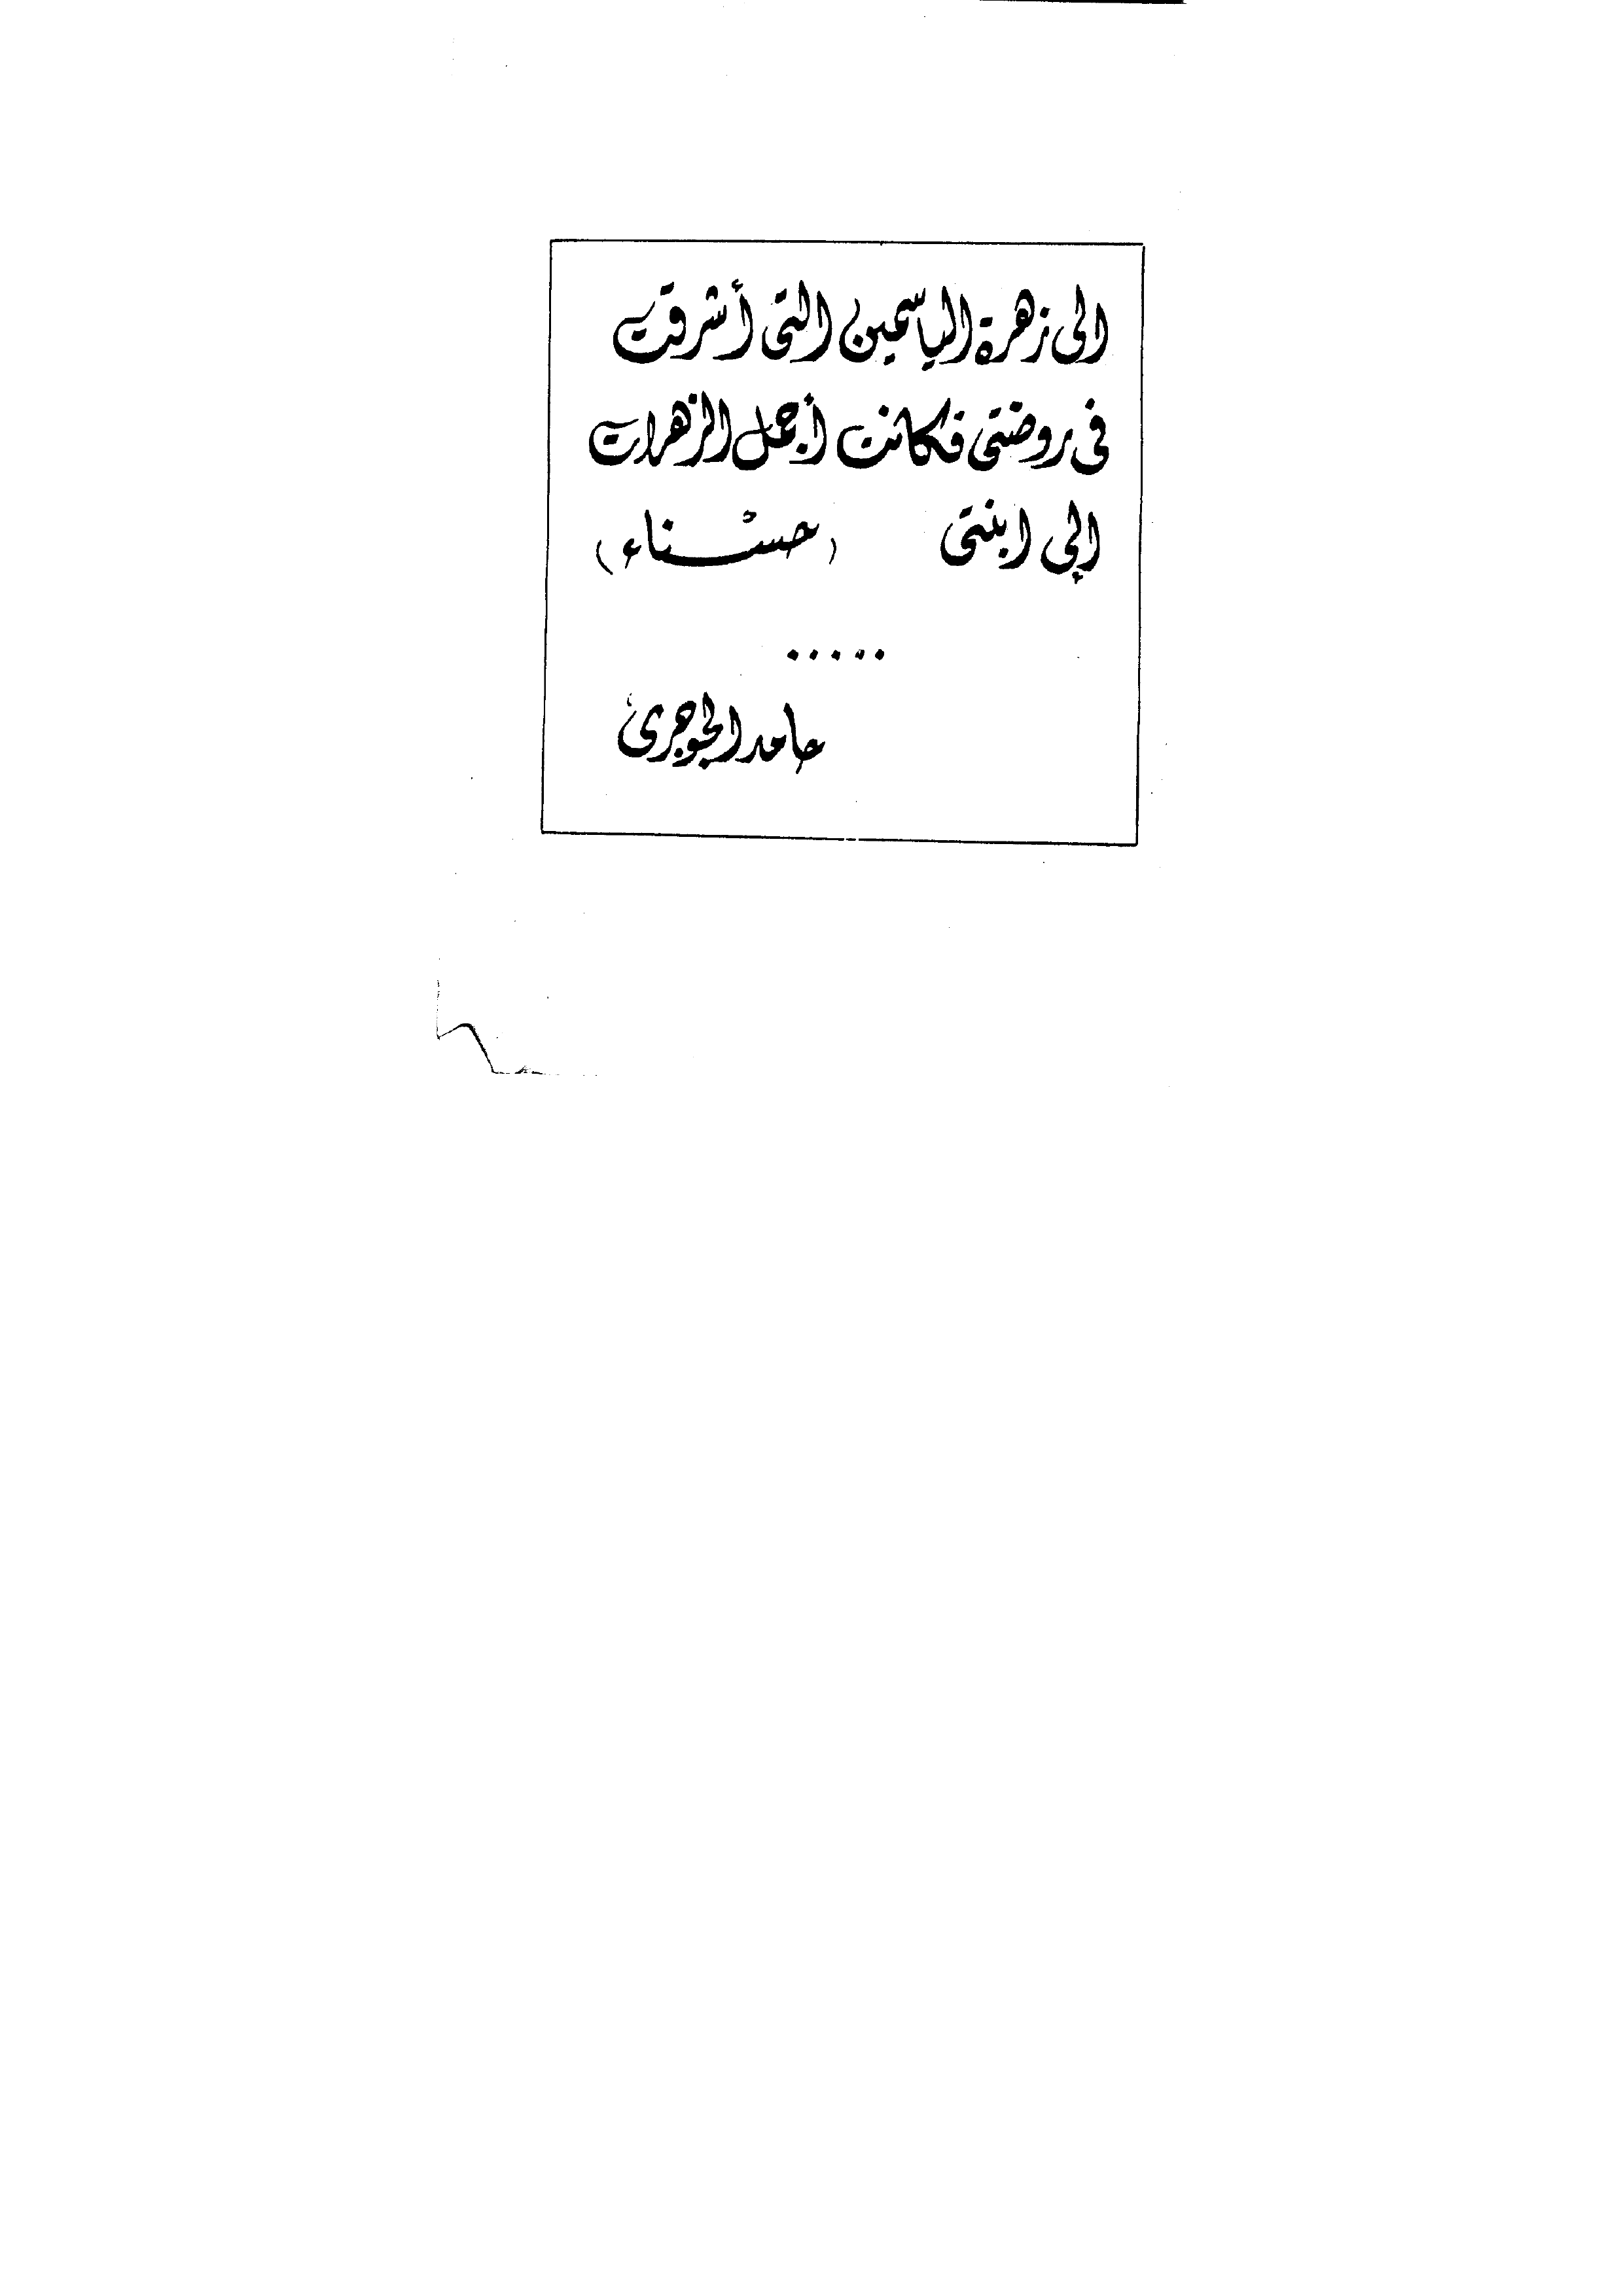 الى زهرة الياسمين التى أشرقت
فى روضتى فكانت أجمل الزهرات
إلى ابنتى (حسناء)
.....
حامد الجوهرى